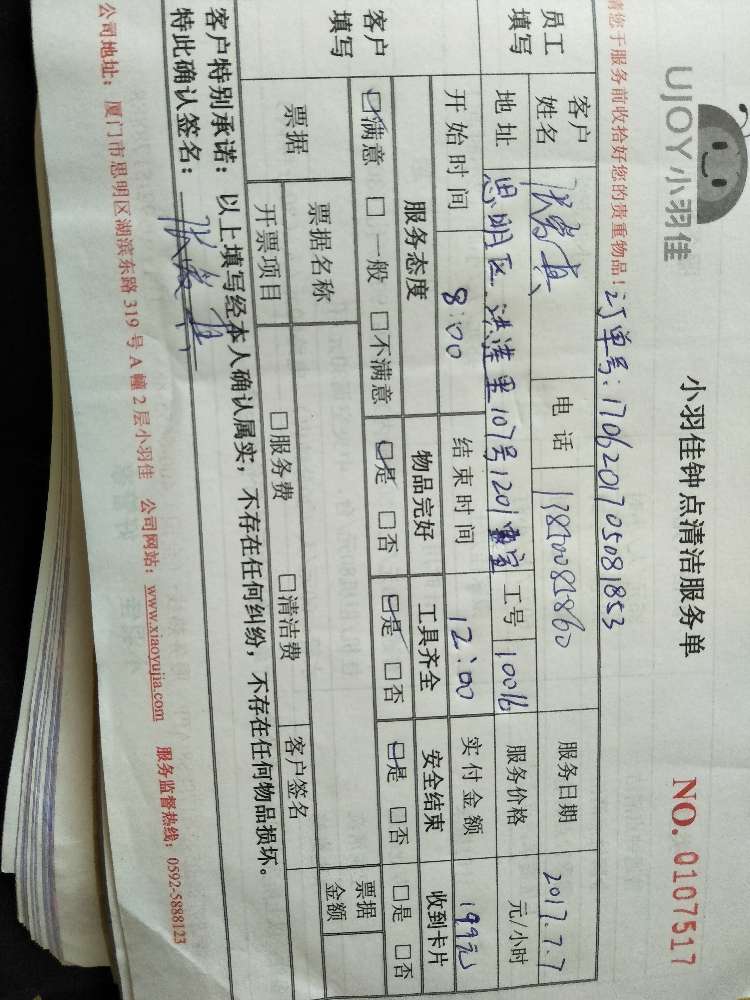 UJOY小羽佳
小羽佳钟点清洁服务单
NO. 0107517
请您于服务前收拾好您的贵重物品！订单号：1706201705081853
员工填写 客户姓名 电话 服务日期 2017.7.7
地址 思明区 洪莲里107号1201室 工号 10016 服务价格 元/小时
开始时间 8:00 结束时间 12:00 实付金额 199元
客户填写 服务态度 物品完好 工具齐全 安全结束 收到卡片
☑满意 □一般 □不满意 ☑是 □否 ☑是 □否 ☑是 □否 □是 □否
票据 票据名称 票据金额
开票项目 □服务费 □清洁费 客户签名
客户特别承诺：以上填写经本人确认属实，不存在任何纠纷，不存在任何物品损坏。
特此确认签名：
公司地址：厦门市思明区湖滨东路319号A幢2层小羽佳 公司网站：www.xiaoyujia.com 服务监督热线：0592-5888123